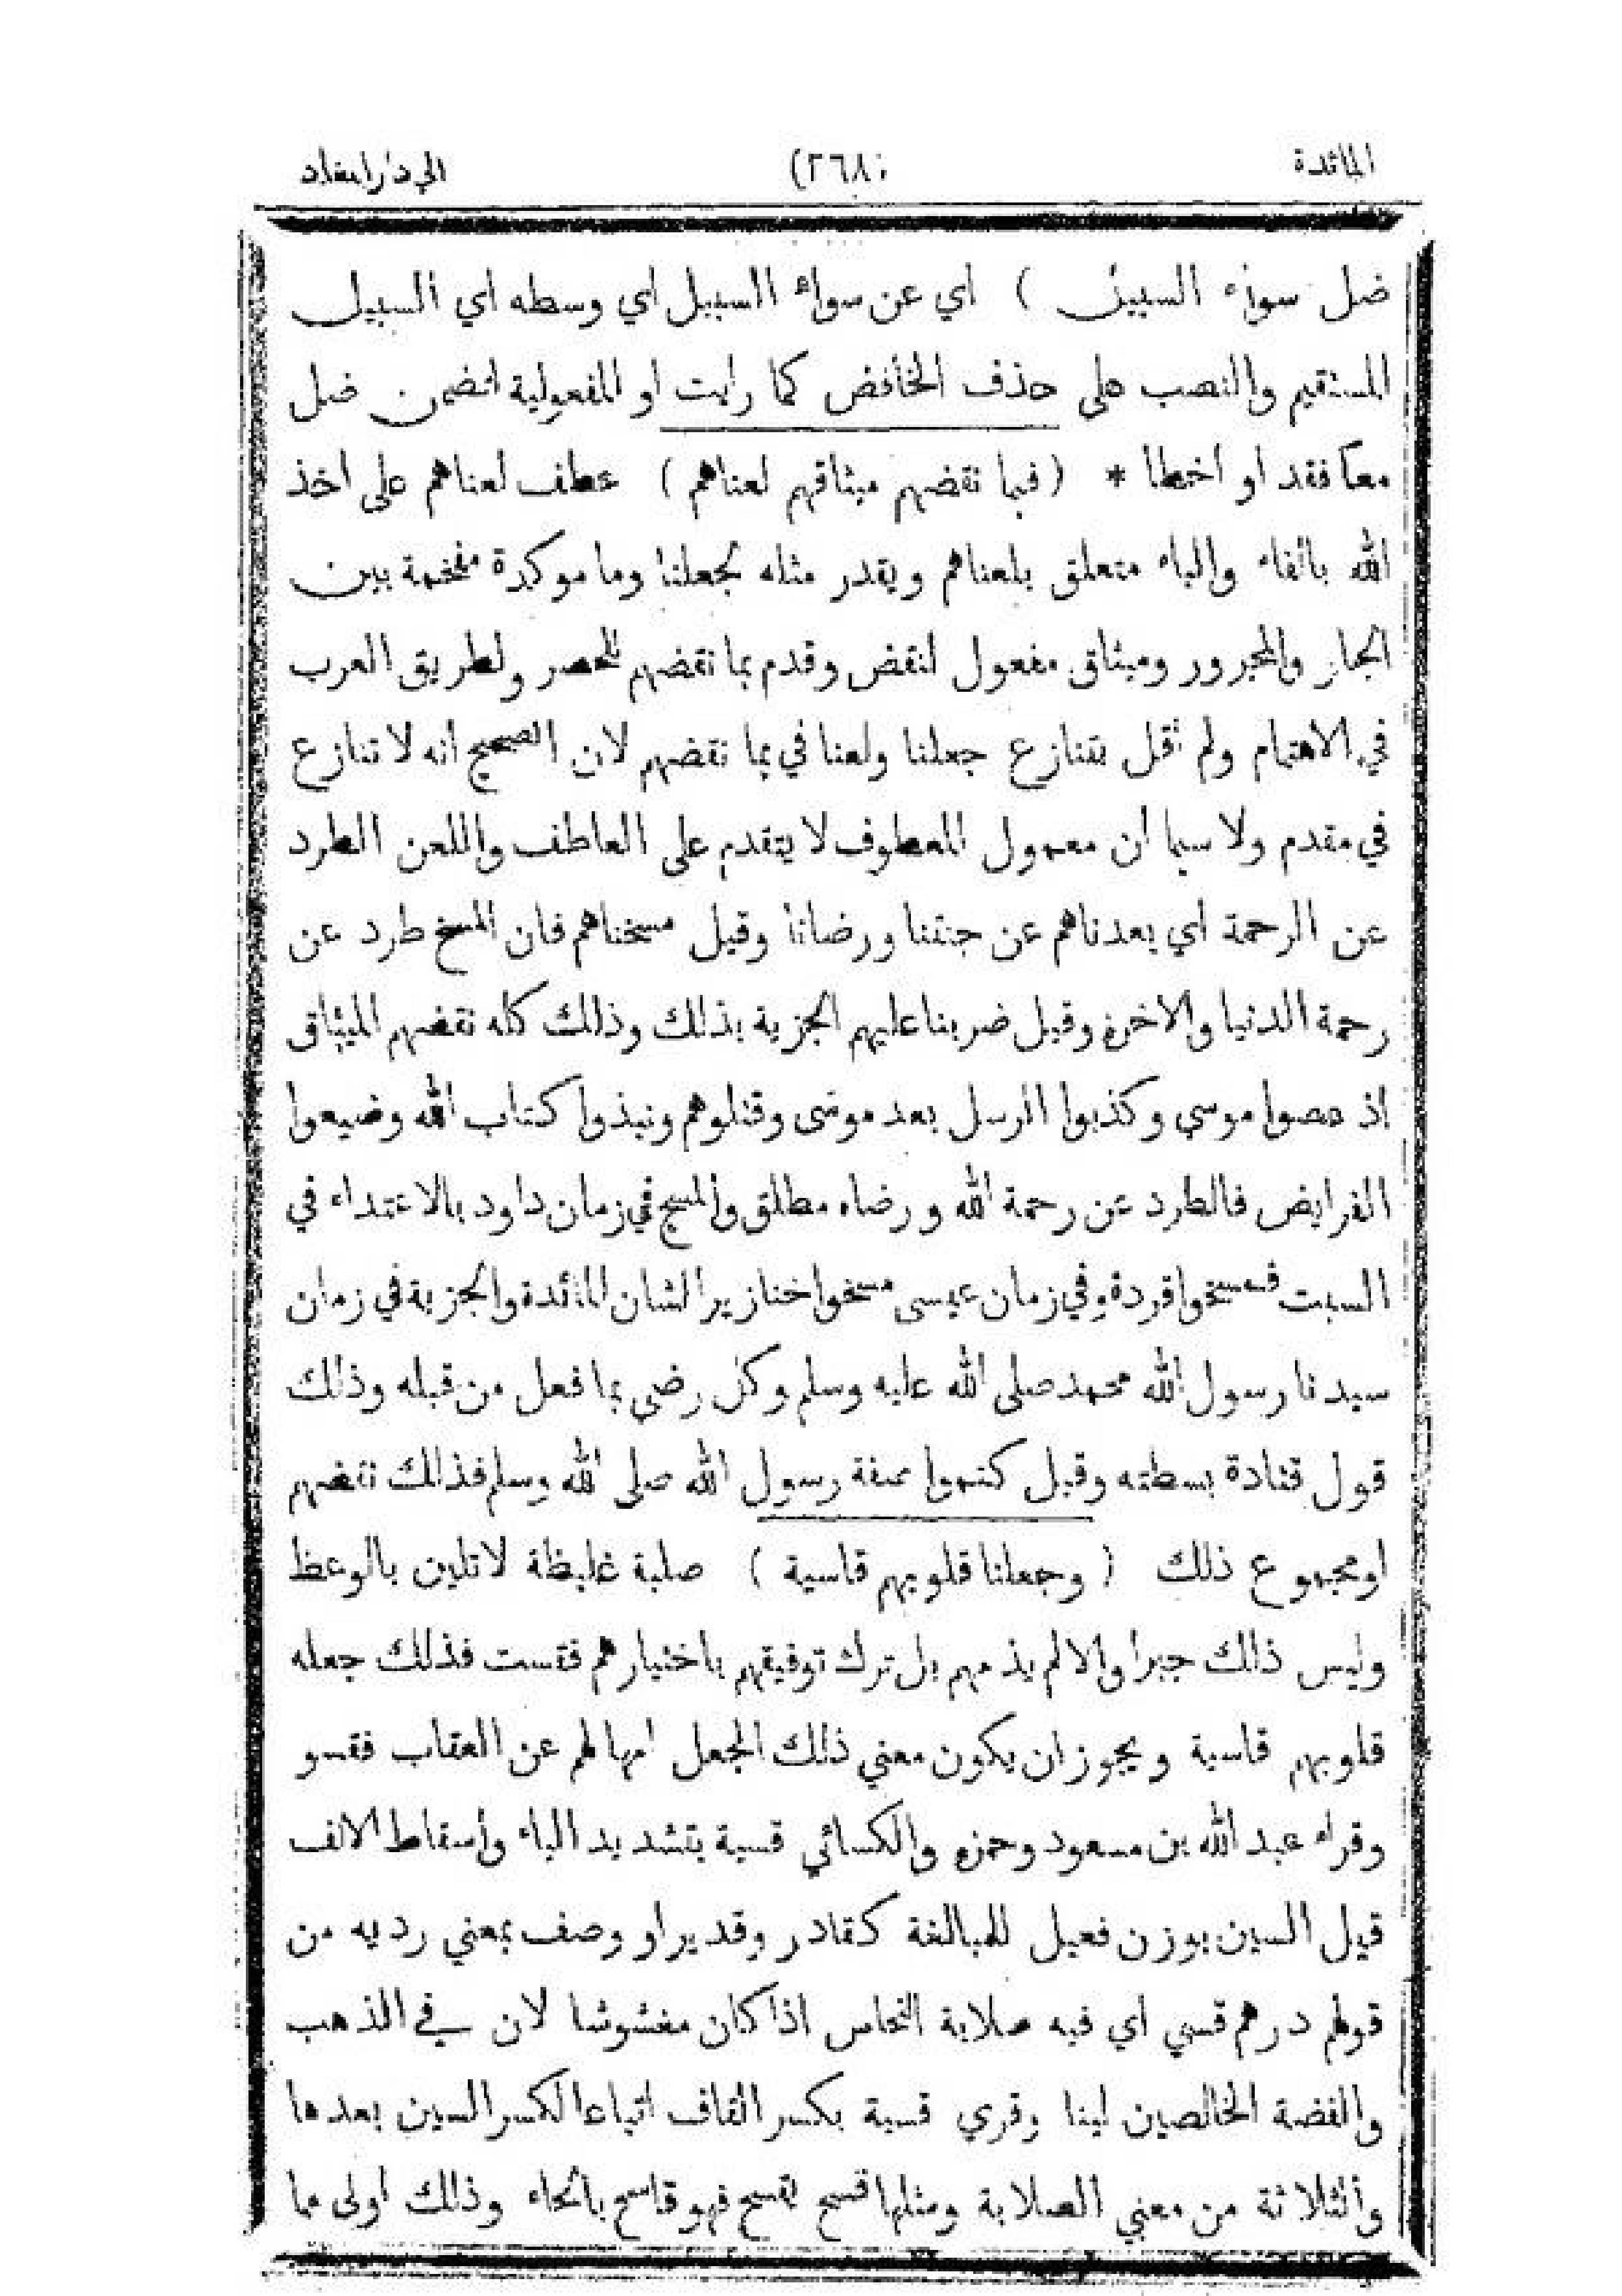 المائدة (٢٦٨)
ضل سواء السبيل ) اي عن سواء السبيل اي وسطه اي السبيل
المستقيم والنصب على حذف الخافض كما رايت او المفعولية لتضمن ضل
معنى فقد او اخطأ * ( فبما نقضهم ميثاقهم لعناهم ) عطف لعناهم على اخذ
الله بالفاء والباء متعلق بلعناهم ويقدر مثله لجعلنا وما موكدة مفخمة بين
الجار والمجرور وميثاق مفعول لنقض وقدم بما نقضهم للحصر ولطريق العرب
في الاهتمام ولم أقل بتنازع جعلنا ولعنا في بما نقضهم لان الصحيح انه لا تنازع
في مقدم ولا سيما ان معمول المعطوف لا يتقدم على العاطف واللعن الطرد
عن الرحمة اي بعدناهم عن جنتنا ورضانا وقيل مسخناهم فان المسخ طرد عن
رحمة الدنيا والاخرة وقيل ضربنا عليهم الجزية بذلك وذلك كله نقضهم الميثاق
اذ عصوا موسى وكذبوا الرسل بعد موسى وقتلوهم ونبذوا كتاب الله وضيعوا
الفرايض فالطرد عن رحمة الله ورضاه مطلق والمسخ في زمان داود بالاعتداء في
السبت فمسخوا قردة وفي زمان عيسى مسخوا خنازير الشان المائدة والجزية في زمان
سيدنا رسول الله محمد صلى الله عليه وسلم وكل رضي بما فعل من قبله وذلك
قول قتادة بسطته وقيل كتموا صفة رسول الله صلى الله وسلم فذلك نقضهم
او مجموع ذلك ( وجعلنا قلوبهم قاسية ) صلبة غليظة لا تلين بالوعظ
وليس ذلك جبرا والا لم يذمهم بل ترك توفيقهم باختيارهم فقست فذلك جعله
قلوبهم قاسية ويجوز ان يكون معني ذلك الجعل امهالهم عن العقاب فقسو
وقراء عبد الله بن مسعود وحمزه والكسائي قسية بتشديد الياء واسقاط الالف
قيل السين بوزن فعيل للمبالغة كقادر وقدير او وصف بمعني رديه من
قولهم درهم قسي اي فيه صلابة النحاس اذا كان مغشوشا لان في الذهب
والفضة الخالصين لينا وقري قسية بكسر القاف اتباعا لكسر السين بعدها
والثلاثة من معني الصلابة ومثلها قسح يقسح فهو قاسح بالحاء وذلك اولى مما